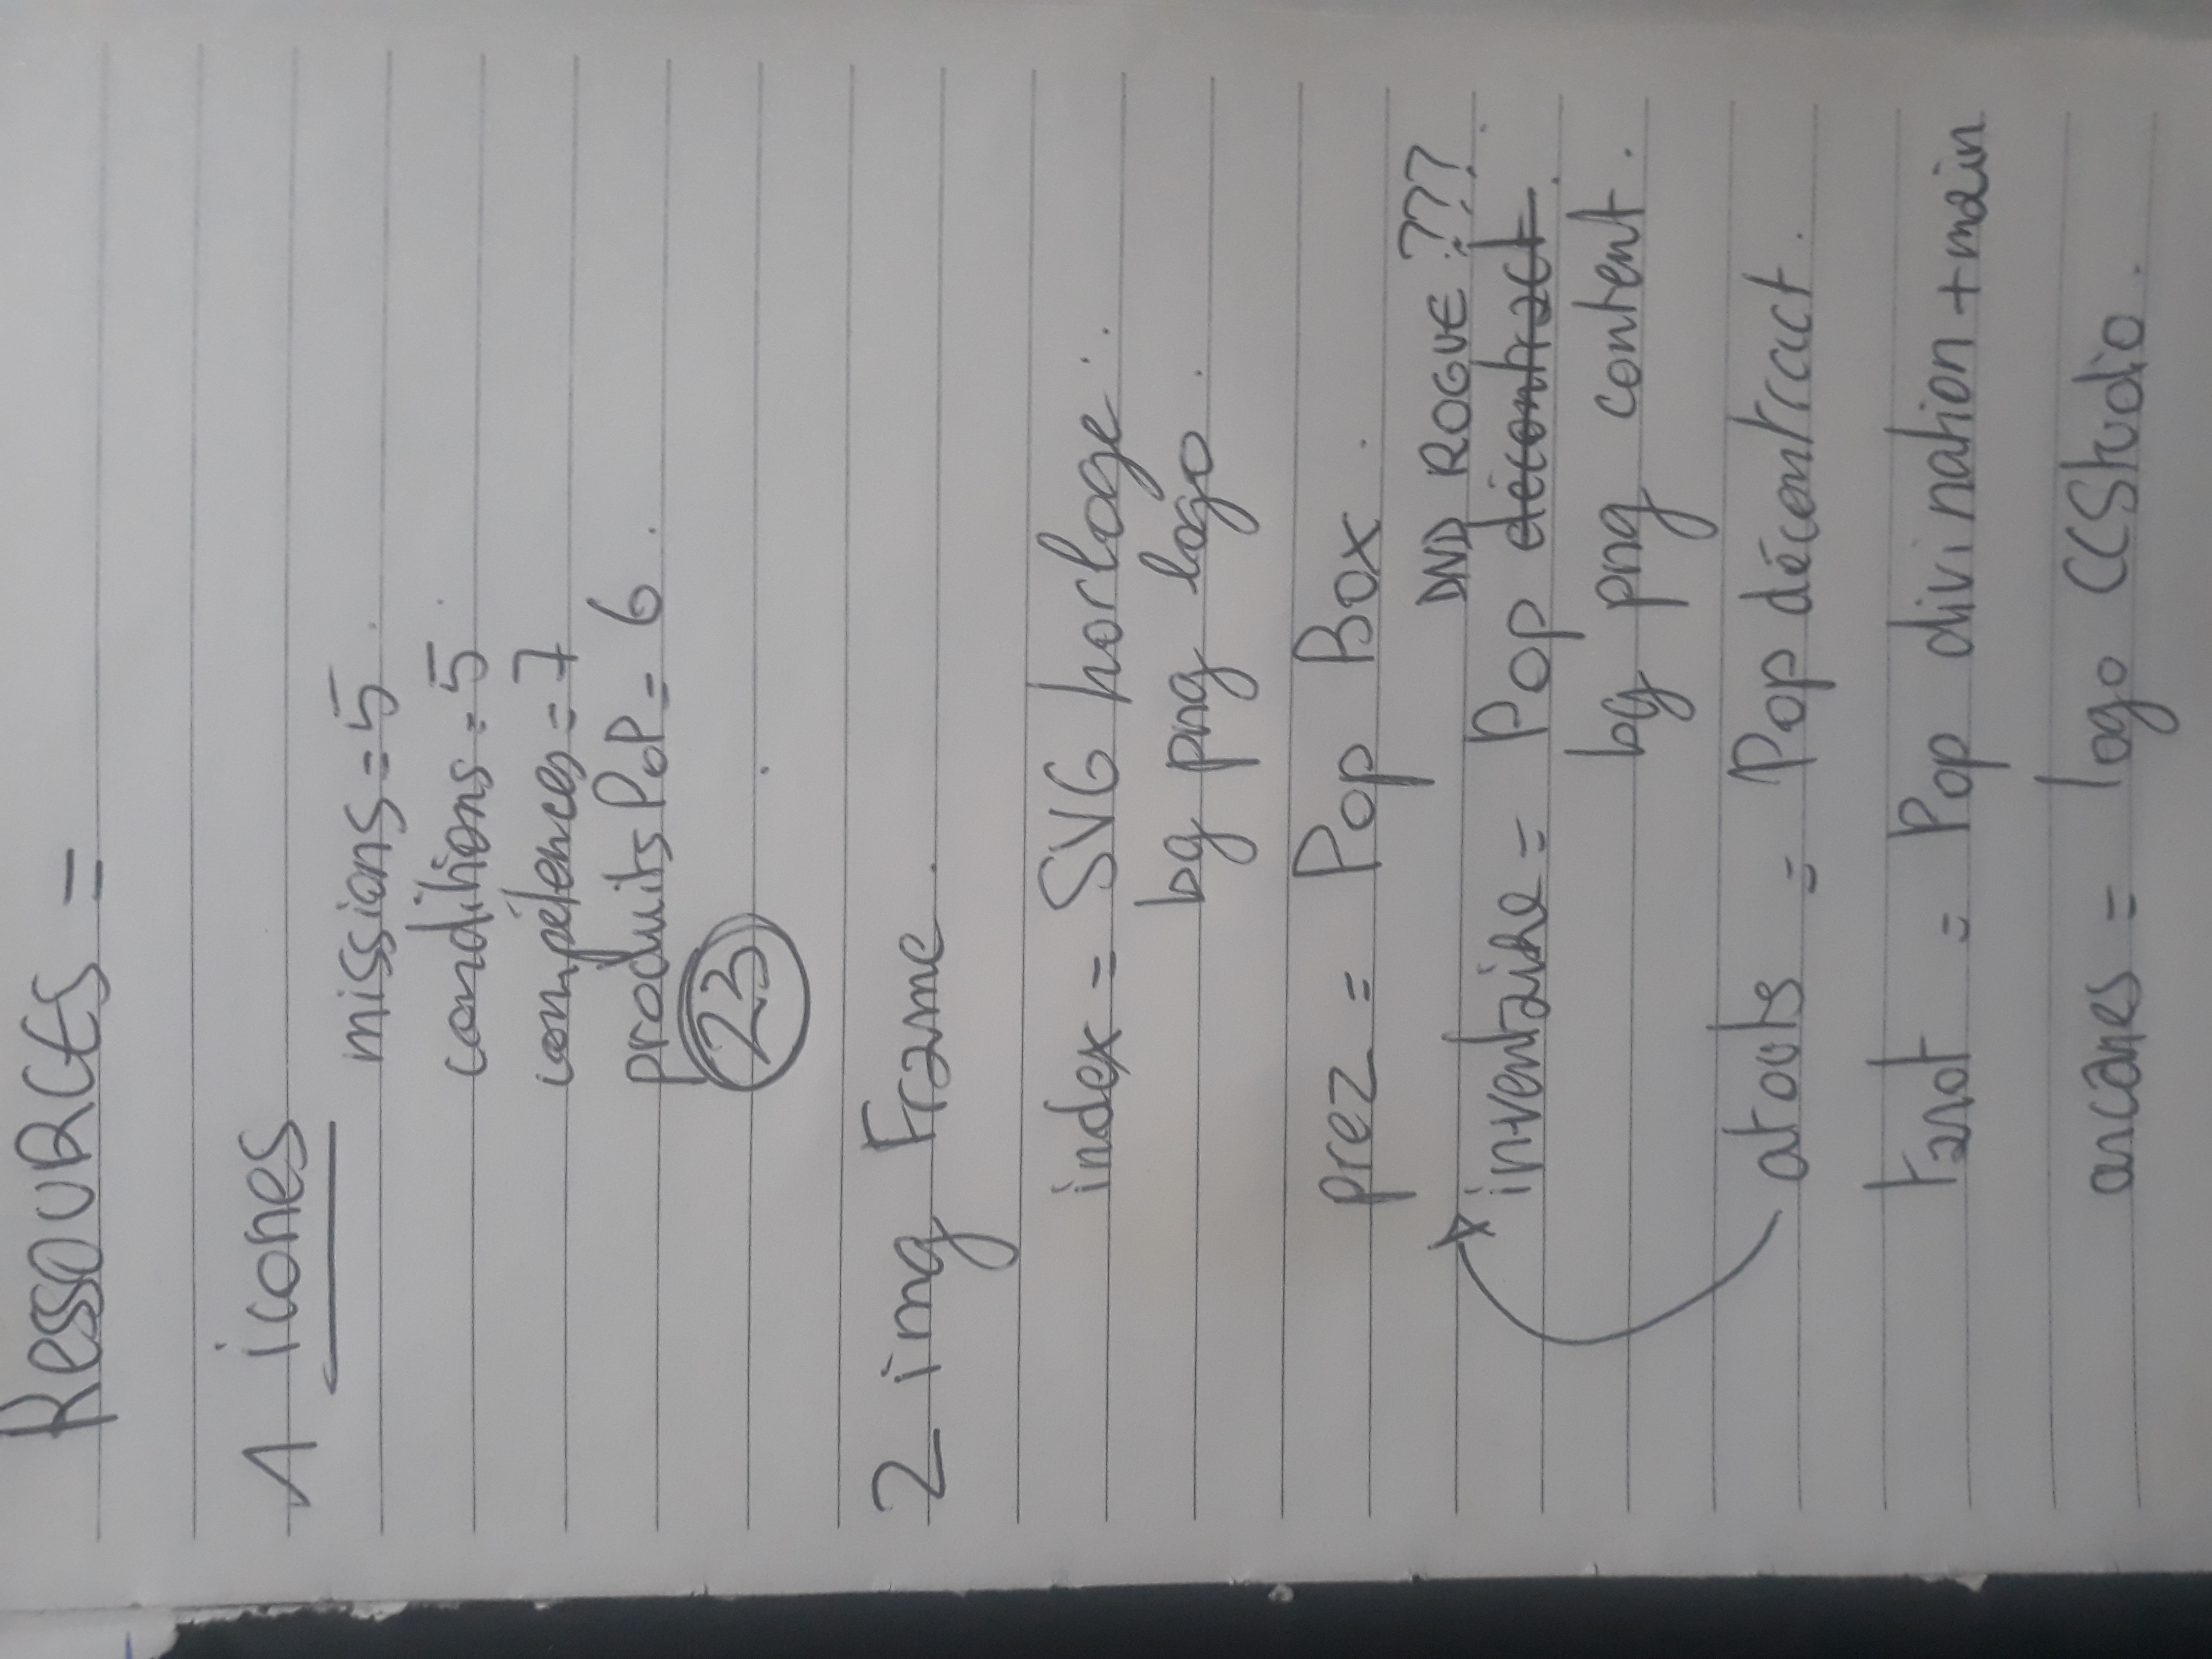 RESSOURCES =
1 icones
missions = 5
conditions = 5
compétences = 7
produits PoP = 6
23
2 img Frame.
index = SVG horloge.
bg png logo.
prez = Pop Box.
DND ROGUE ???
inventaire = Pop décontract.
bg png content.
atouts = Pop décontract.
tarot = Pop divination + main
arcanes = logo CCStudio.